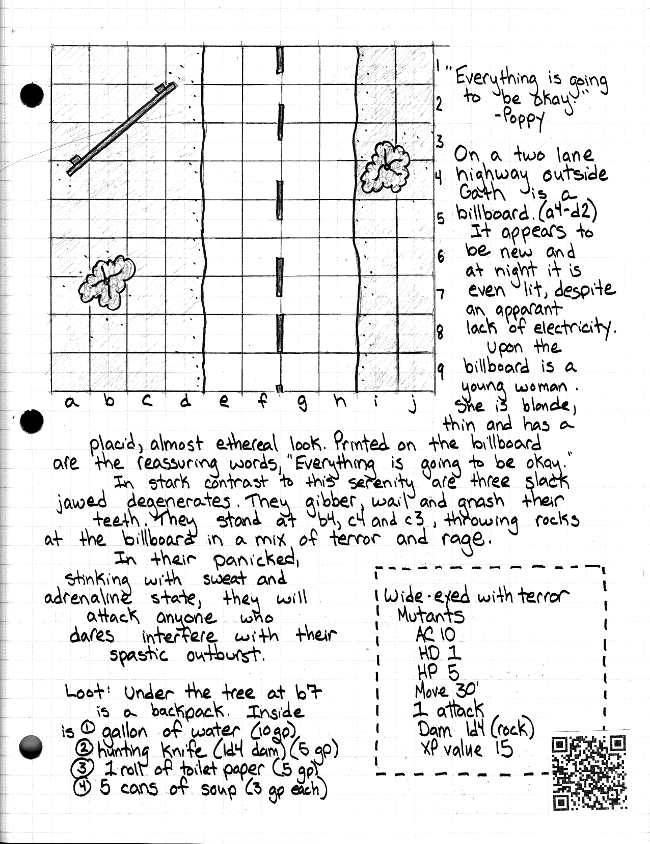 1
2
3
4
5
6
7
8
9
a b c d e f g h i j
"Everything is going
to be okay."
-Poppy
On a two lane
highway outside
Gath is a
billboard. (a4-d2)
It appears to
be new and
at night it is
even lit, despite
an apparant
lack of electricity.
Upon the
billboard is a
young woman.
She is blonde,
thin and has a
placid, almost ethereal look. Printed on the billboard
are the reassuring words, "Everything is going to be okay."
In stark contrast to this serenity are three slack
jawed degenerates. They gibber, wail and gnash their
teeth. They stand at b4, c4 and c3, throwing rocks
at the billboard in a mix of terror and rage.
In their panicked,
stinking with sweat and
adrenaline state, they will
attack anyone who
dares interfere with their
spastic outburst.
Loot: Under the tree at b7
is a backpack. Inside
is ① gallon of water (10gp)
② hunting knife (1d4 dam) (5 gp)
③ 1 roll of toilet paper (5 gp)
④ 5 cans of soup (3 gp each)
Wide-eyed with terror
Mutants
AC 10
HD 1
HP 5
Move 30'
1 attack
Dam 1d4 (rock)
XP value 15